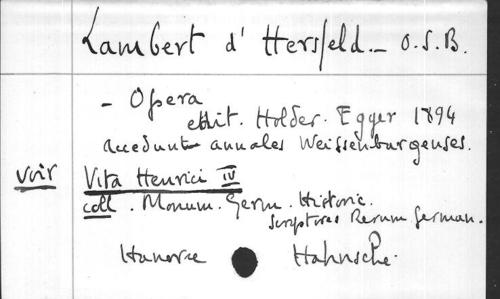 Lambert d' Hersfeld _ O.S.B.
- Opera
edit. Holder. Egger 1894
accedunt annales Weissenburgenses.
voir Vita Henrici IV
coll. Monum. Germ. Historic.
Scriptores Rerum German.
Hanovre Hahnsche.